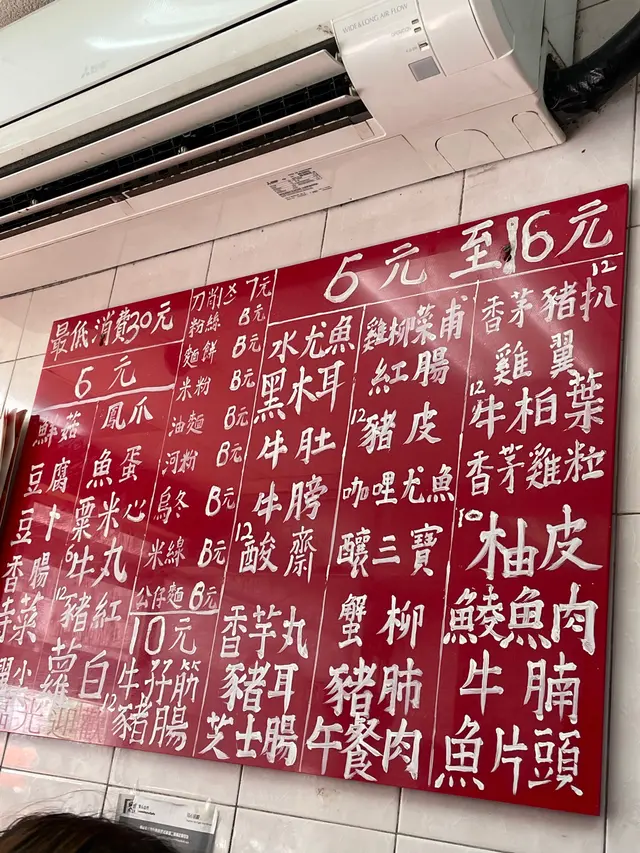 WIDE&LONG AIR FLOW
最低消費30元
6元
鮮菇
豆腐
豆卜
香腸
菜
小
鳳爪
魚蛋
粟米心
6 牛丸
12 豬紅
蘿白
刀削 7元
粉絲 8元
麵餅 8元
米粉 8元
油麵 8元
河粉 8元
烏冬 8元
米線 8元
公仔麵 6元
10元
牛孖筋
12 豬腸
5元至16元
水尤魚
黑木耳
牛肚
牛膀
12 酸齋
香芋丸
豬耳
芝士腸
雞柳菜甫
紅腸
12 豬皮
咖哩尤魚
釀三寶
蟹柳
豬肺
午餐肉
12 香茅豬扒
雞翼
12 牛柏葉
香茅雞粒
10 柚皮
鯪魚肉
牛腩
魚片頭